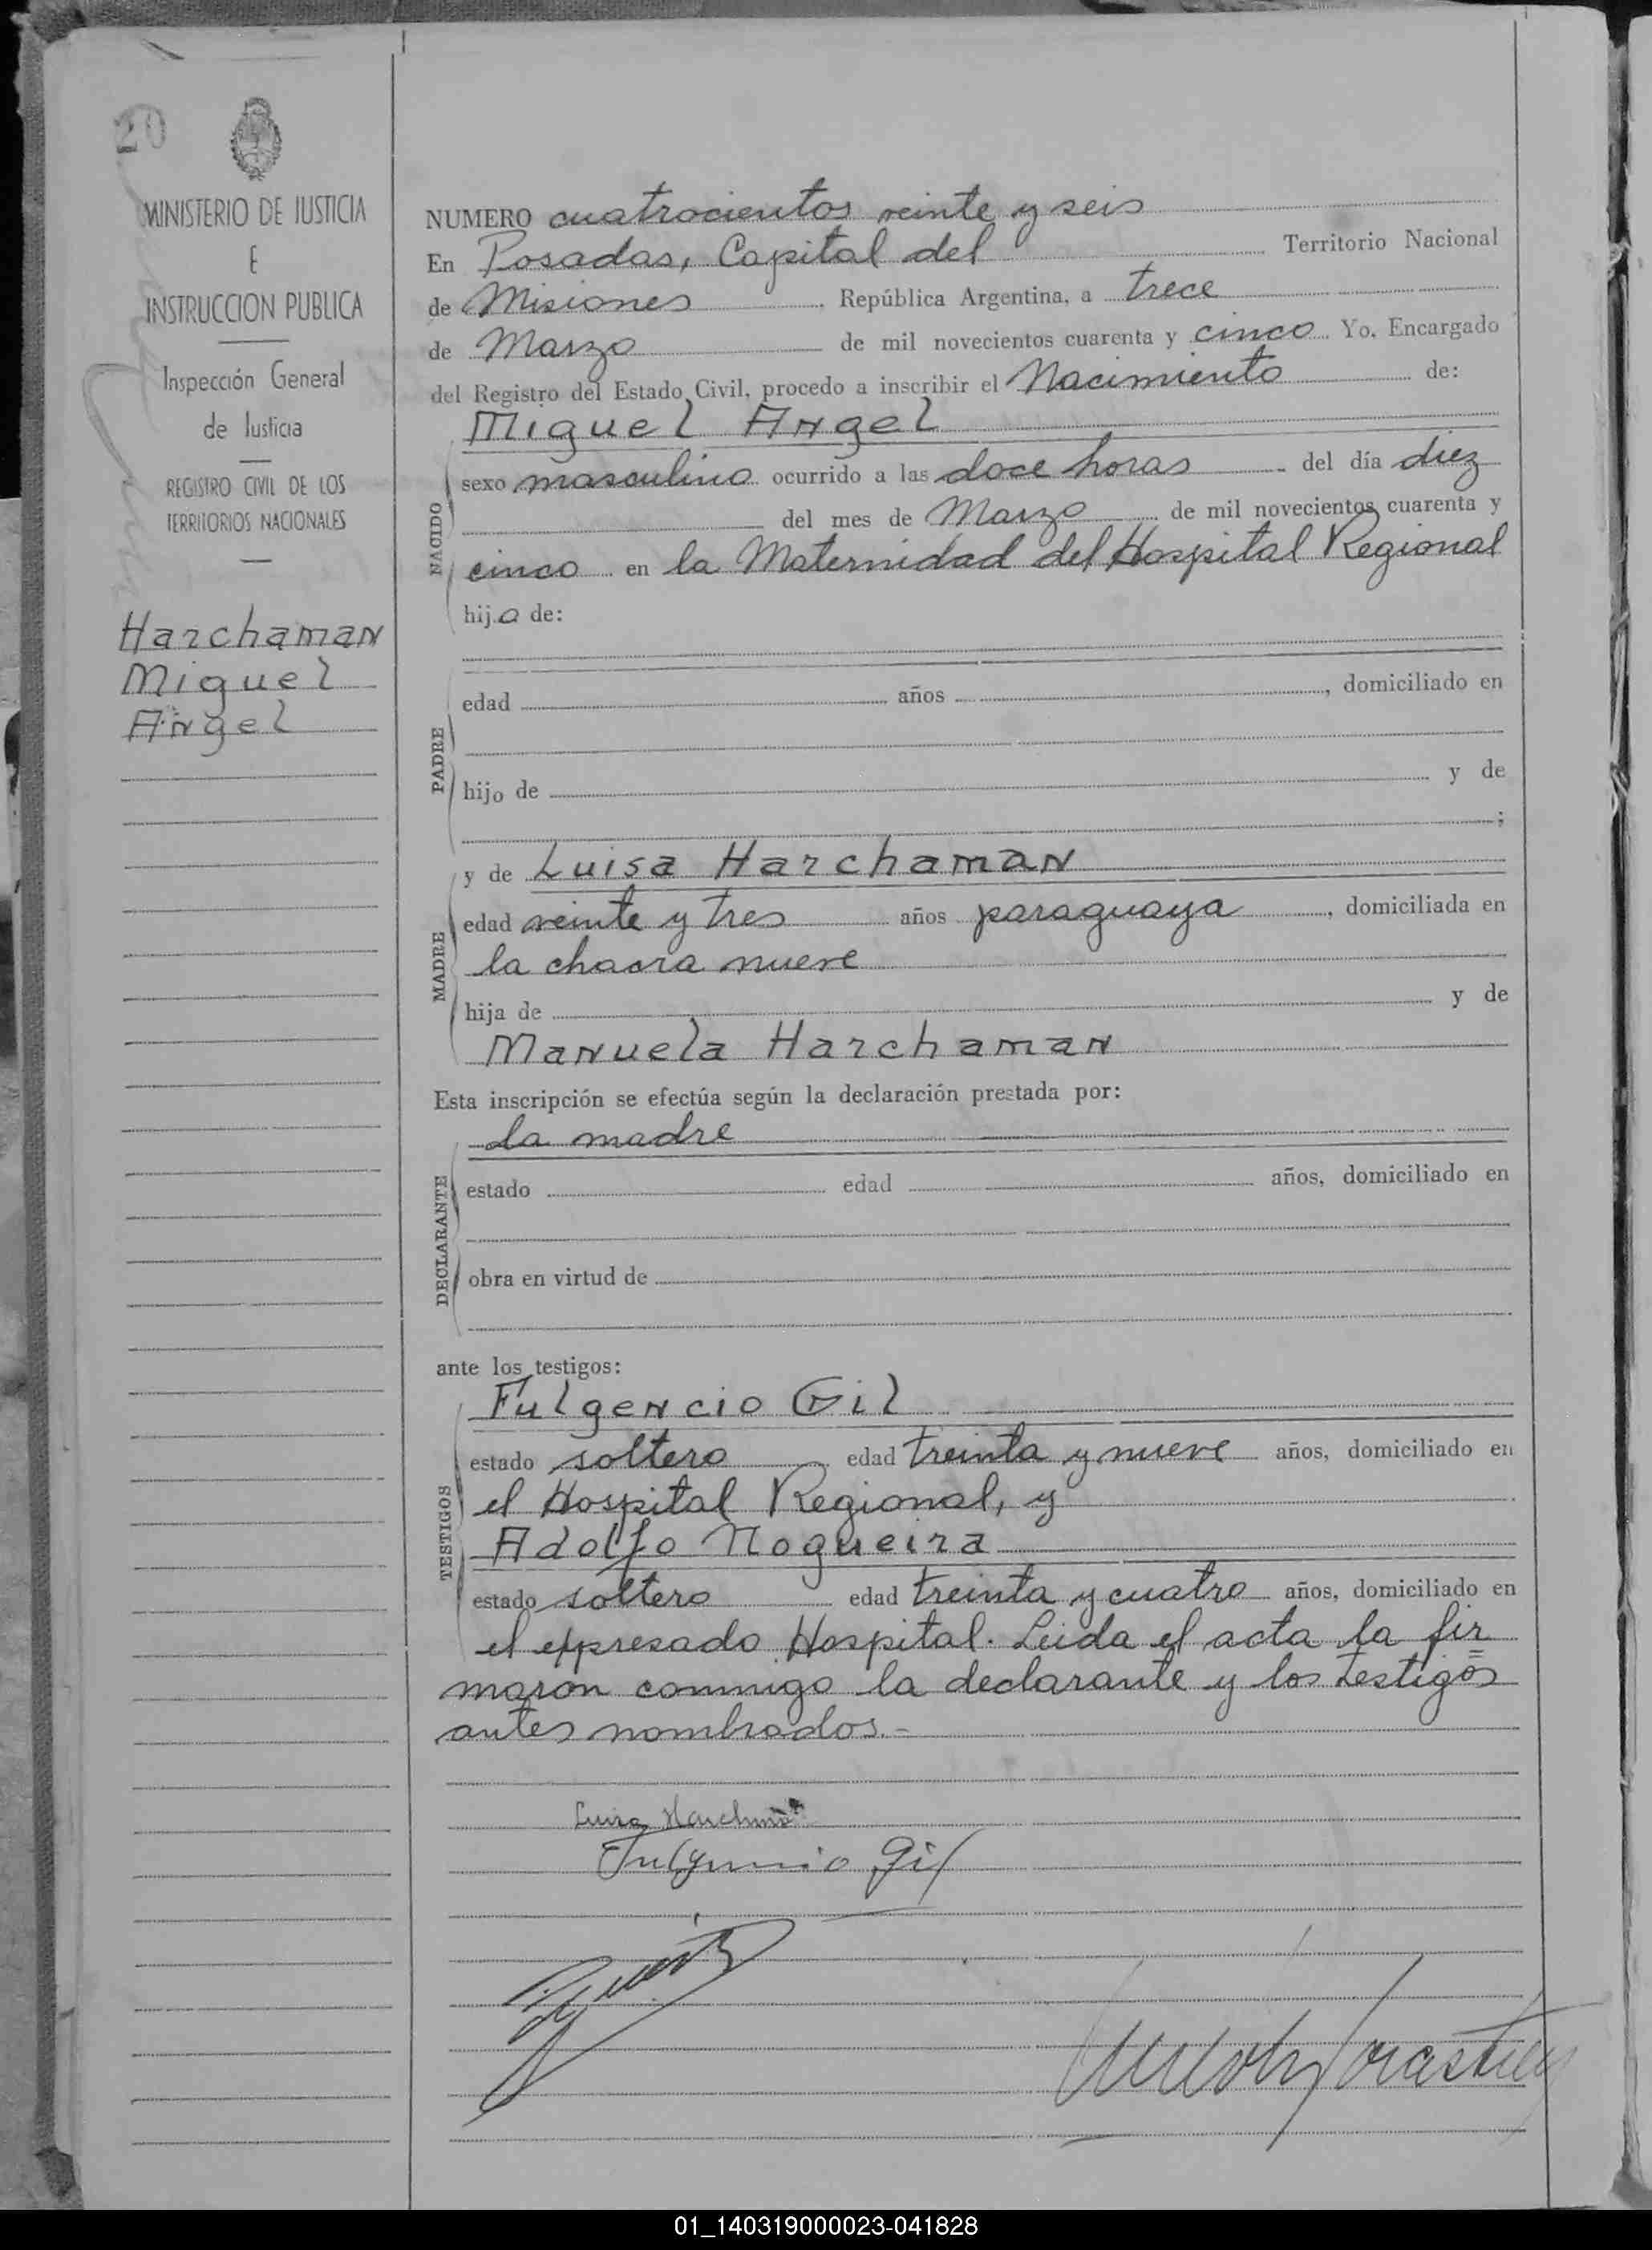 20
MINISTERIO DE JUSTICIA
E
INSTRUCCION PUBLICA
Inspección General
de Justicia
REGISTRO CIVIL DE LOS
TERRITORIOS NACIONALES
Harchaman
Miguel
Angel
NUMERO cuatrocientos veinte y seis
En Posadas, Capital del Territorio Nacional
de Misiones República Argentina, a trece
de Marzo de mil novecientos cuarenta y cinco Yo, Encargado
del Registro del Estado Civil, procedo a inscribir el Nacimiento de:
Miguel Angel
NACIDO
sexo masculino ocurrido a las doce horas del día diez
del mes de Marzo de mil novecientos cuarenta y
cinco en la Maternidad del Hospital Regional
hijo de:
PADRE
edad años , domiciliado en
hijo de y de
;
MADRE
y de Luisa Harchaman
edad veinte y tres años paraguaya , domiciliada en
la chacra nueve
hija de y de
Manuela Harchaman
Esta inscripción se efectúa según la declaración prestada por:
la madre
DECLARANTE
estado edad años, domiciliado en
obra en virtud de
ante los testigos:
TESTIGOS
Fulgencio Gil
estado soltero edad treinta y nueve años, domiciliado en
el Hospital Regional, y
Adolfo Nogueira
estado soltero edad treinta y cuatro años, domiciliado en
el expresado Hospital. Leida el acta la fir=
maron conmigo la declarante y los testigos
antes nombrados.=
Luisa
Fulgencio Gil
01_140319000023-041828